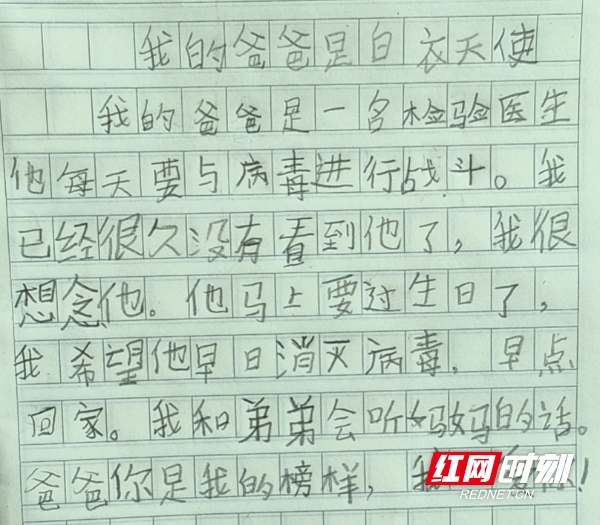 我的爸爸是白衣天使
我的爸爸是一名检验医生
他每天要与病毒进行战斗。我
已经很久没有看到他了，我很
想念他。他马上要过生日了，
我希望他早日消灭病毒，早点
回家。我和弟弟会听妈妈的话。
爸爸你是我的榜样，我！
红网时刻
REDNET.CN